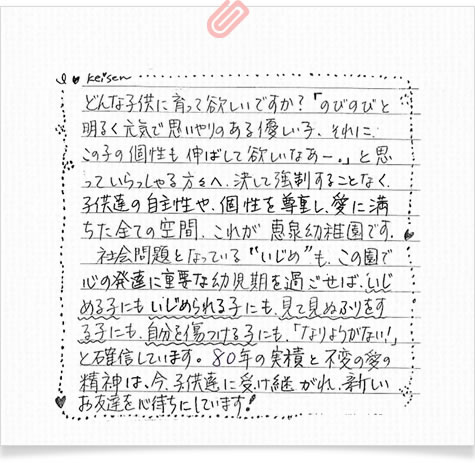 I ♥ Keisen
どんな子供に育って欲しいですか？「のびのびと
明るく元気で思いやりのある優しい子、それに、
この子の個性も伸ばして欲しいなあー。」と思
っていらっしゃる方々へ、決して強制することなく、
子供達の自主性や、個性を尊重し、愛に満
ちた全ての空間、これが恵泉幼稚園です。
社会問題となっている“いじめ”も、この園で
心の発達に重要な幼児期を過ごせば、いじ
める子にもいじめられる子にも、見て見ぬふりをす
る子にも、自分を傷つける子にも、「なりようがない！」
と確信しています。80年の実積と不変の愛の
精神は、今、子供達に受け継がれ、新しい
お友達を心待ちにしています！